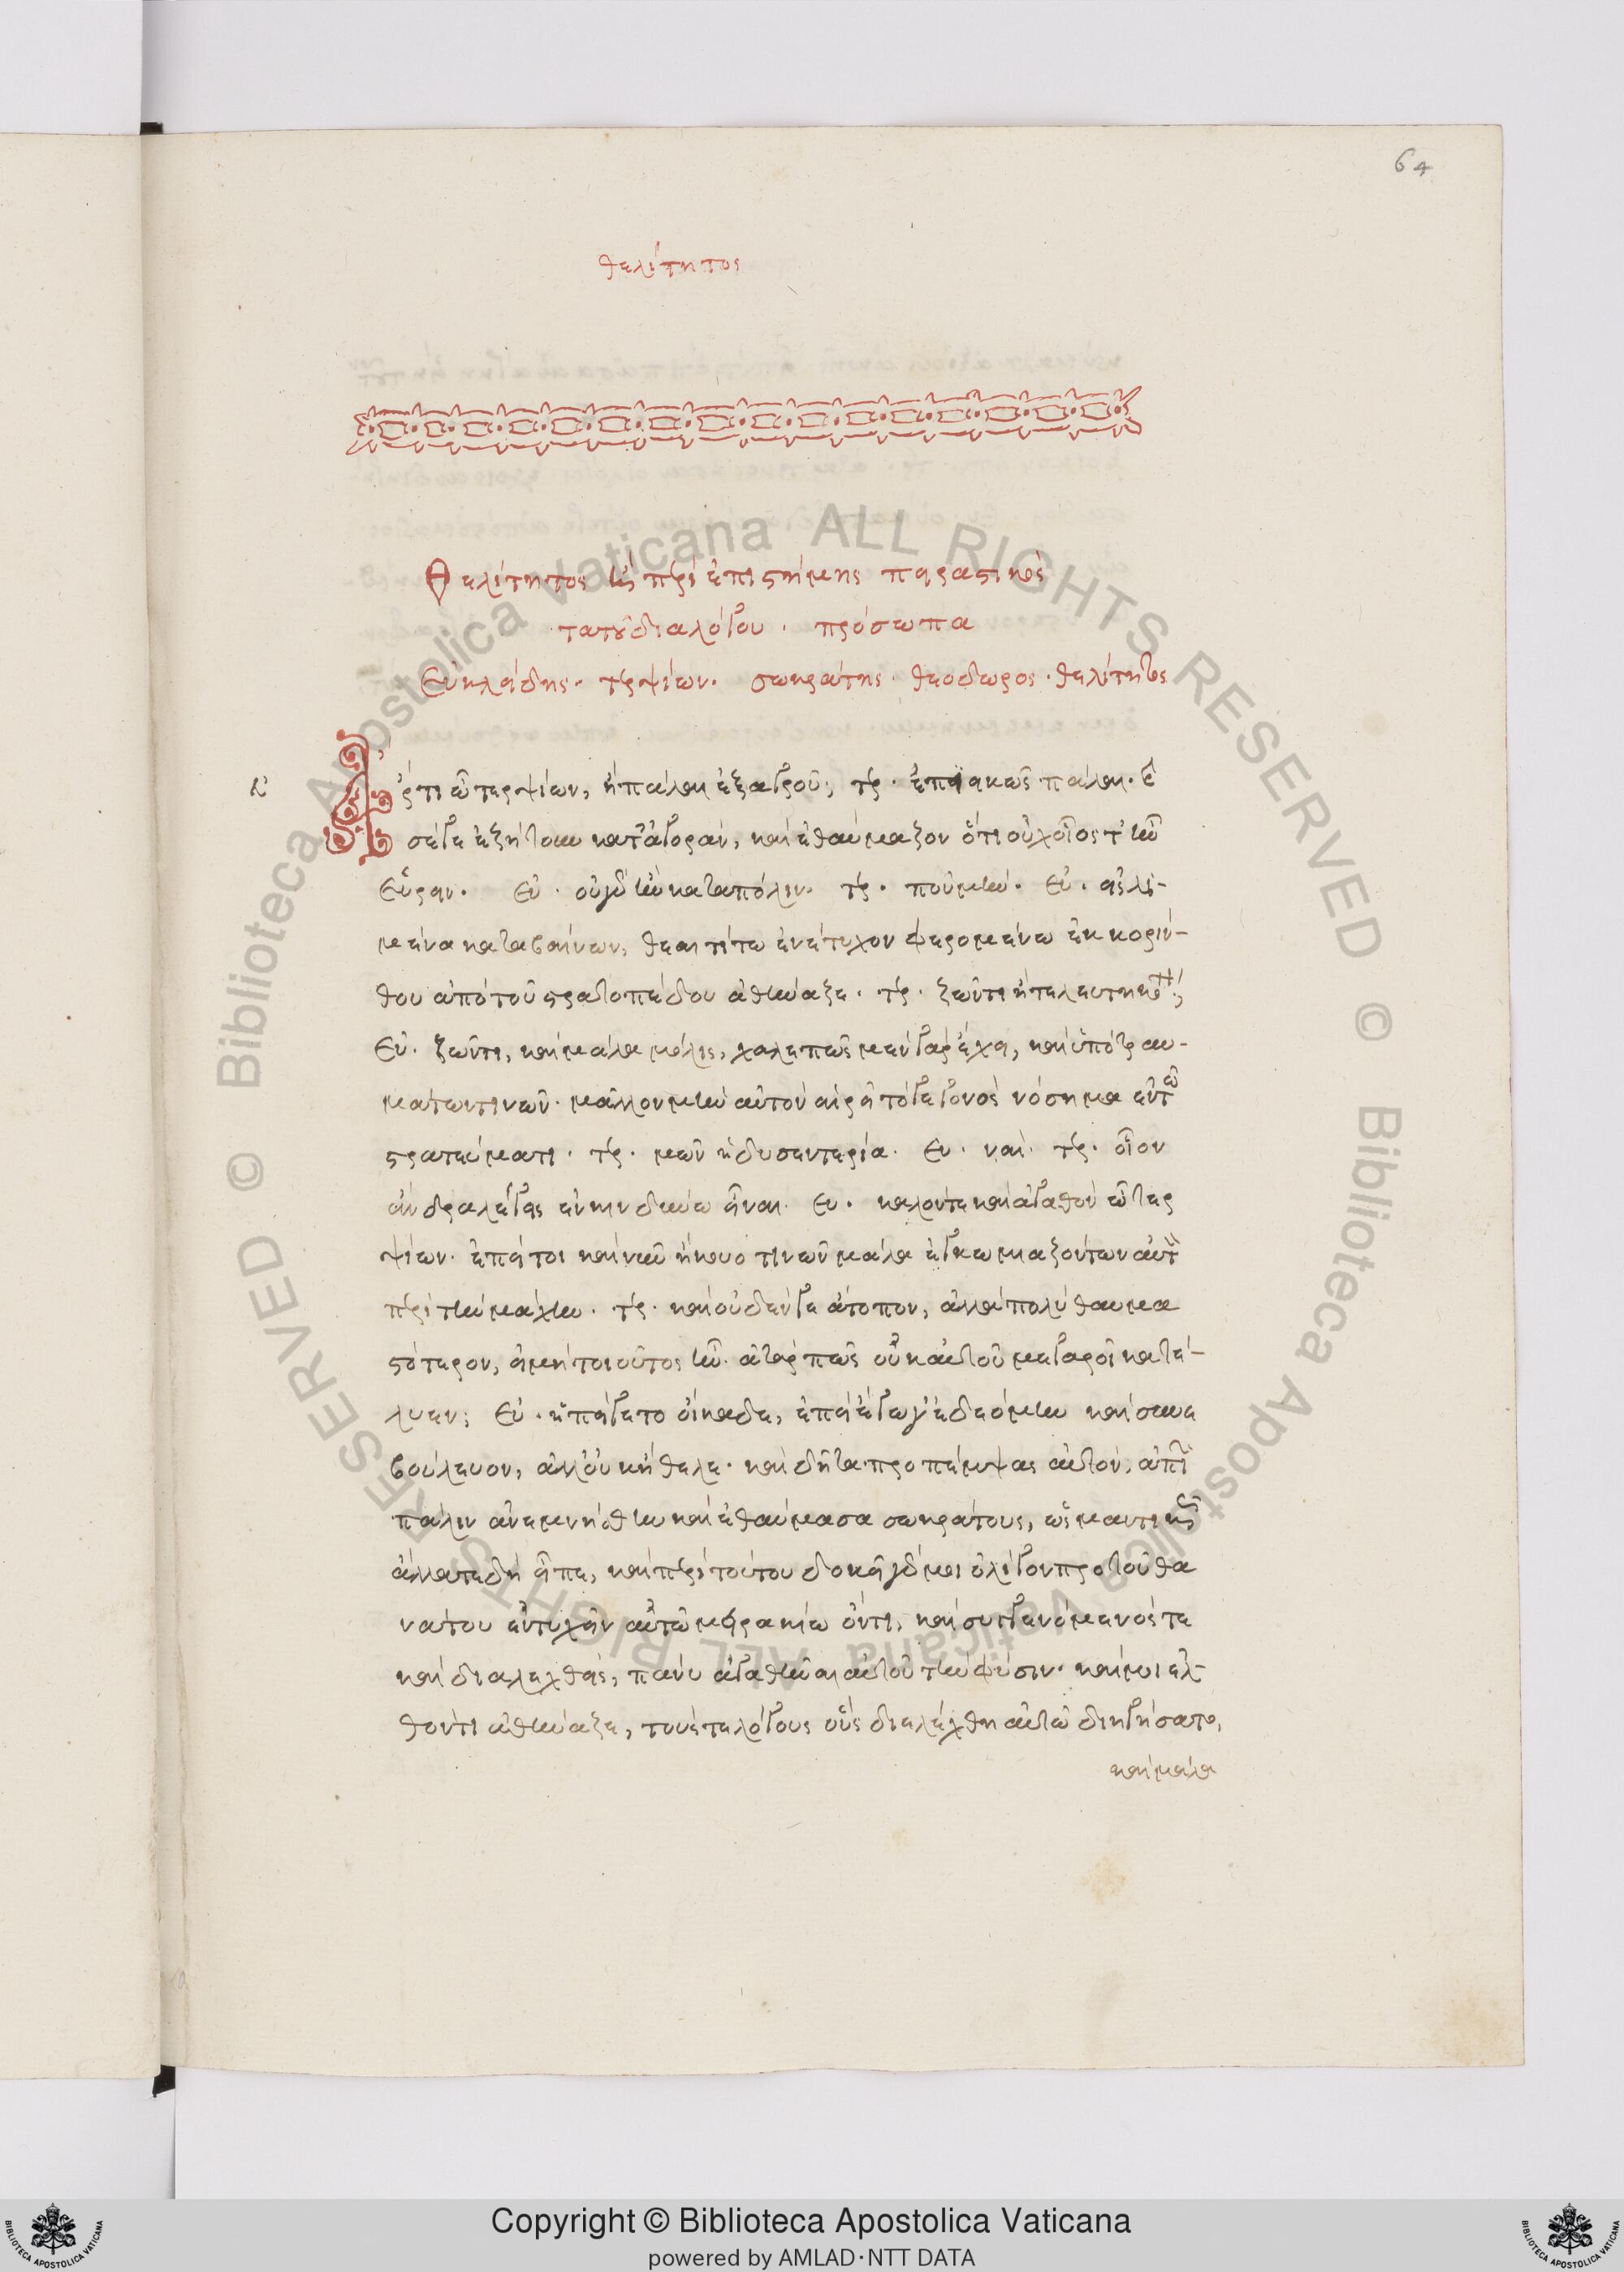 64
θεαίτητος
Θεαίτητος ἢ περὶ ἐπιστήμης πειραστικὸς
τὰ τοῦ διαλόγου · πρόσωπα
Εὐκλείδης · τερψίων · σωκράτης · θεόδωρος · θεαίτητος
Ἄρτι ὦ τερψίων, ἢ πάλαι ἐξ ἀγροῦ; τερ · ἐπιεικῶς πάλαι · καὶ
σέ γε ἐζήτουν κατ' ἀγορὰν, καὶ ἐθαύμαζον ὅτι οὐχ οἷός τ' ἦν
εὑρεῖν · Εὐ · οὐ γὰρ ἦν κατὰ πόλιν · τερ · ποῦ μήν · Εὐ · εἰς λι-
μένα καταβαίνων, θεαιτήτω ἐνέτυχον φερομένω ἐκ κορίν-
θου ἀπὸ τοῦ στρατοπέδου ἀθήναζε · τερ · ζῶντι ἢ τετελευτηκότι;
Εὐ · ζῶντι, καὶ μάλα μόλις, χαλεπῶς μὲν γὰρ ἔχει, καὶ ὑπὸ τραυ-
μάτων τινῶν · μᾶλλον μὴν αὐτὸν αἱρεῖ τὸ γεγονὸς νόσημα ἐν τῶ
στρατεύματι · τερ · μῶν ἡ δυσεντερία · Ευ · ναί · τερ · οἷον
ἄνδρα λέγεις ἐν κινδύνω εἶναι · Ευ · καλόν τε καὶ ἀγαθὸν ὦ τερ
ψίων · ἐπεί τοι καὶ νῦν ἤκουό τινων μάλα ἐγκωμιαζόντων αὐτὸν
περὶ τὴν μάχην · τερ · καὶ οὐδέν γε ἄτοπον, ἀλλὰ πολὺ θαυμα
στότερον, εἰ μὴ τοιοῦτος ἦν · ἀτὰρ πῶς οὐκ αὐτοῦ μεγαροῖ κατέ-
λυεν; Εὐ · ἠπείγετο οἴκαδε, ἐπεὶ ἔγωγ' ἐδεόμην καὶ συνε
βούλευον, ἀλλ' οὐκ ἤθελε · καὶ δῆτα προπέμψας αὐτὸν, ἀπιὼν
πάλιν ἀνεμνήσθην καὶ ἐθαύμασα σωκράτους, ὡς μαντικῶς
ἄλλα τε δὴ εἶπε, καὶ περὶ τούτου · δοκεῖ γάρ μοι ὀλίγον πρὸ τοῦ θα
νάτου ἐντυχεῖν αὐτῶ μειρακίω ὄντι, καὶ συγγενόμενός τε
καὶ διαλεχθεὶς, πάνυ ἀγασθῆναι αὐτοῦ τὴν φύσιν · καί μοι ἐλ-
θόντι ἀθήναζε, τούς τε λόγους οὓς διελέχθη αὐτῶ διηγήσατο,
καὶ μάλα
Copyright © Biblioteca Apostolica Vaticana
powered by AMLAD·NTT DATA
© Biblioteca Apostolica Vaticana ALL RIGHTS RESERVED
© Biblioteca Apostolica Vaticana ALL RIGHTS RESERVED
BIBLIOTECA APOSTOLICA VATICANA
BIBLIOTECA APOSTOLICA VATICANA